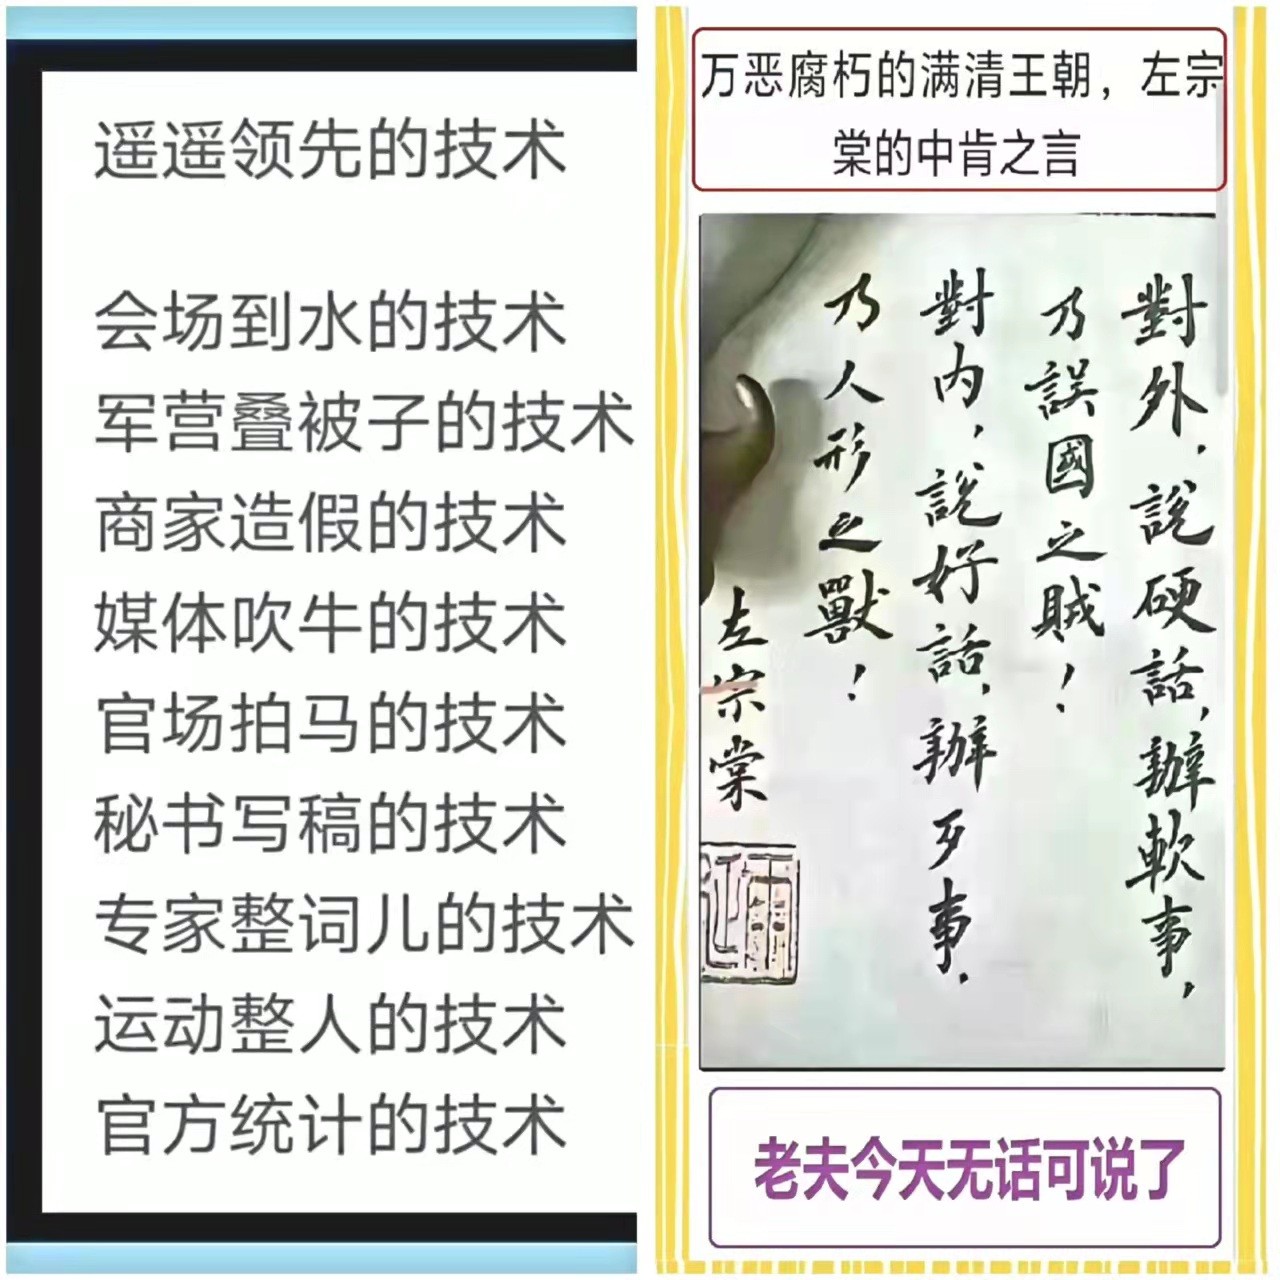 遥遥领先的技术
会场到水的技术
军营叠被子的技术
商家造假的技术
媒体吹牛的技术
官场拍马的技术
秘书写稿的技术
专家整词儿的技术
运动整人的技术
官方统计的技术
万恶腐朽的满清王朝，左宗
棠的中肯之言
對外，說硬話，辦軟事，
乃誤國之賊！
對内，說好話，辦歹事，
乃人形之獸！
左宗棠
老夫今天无话可说了